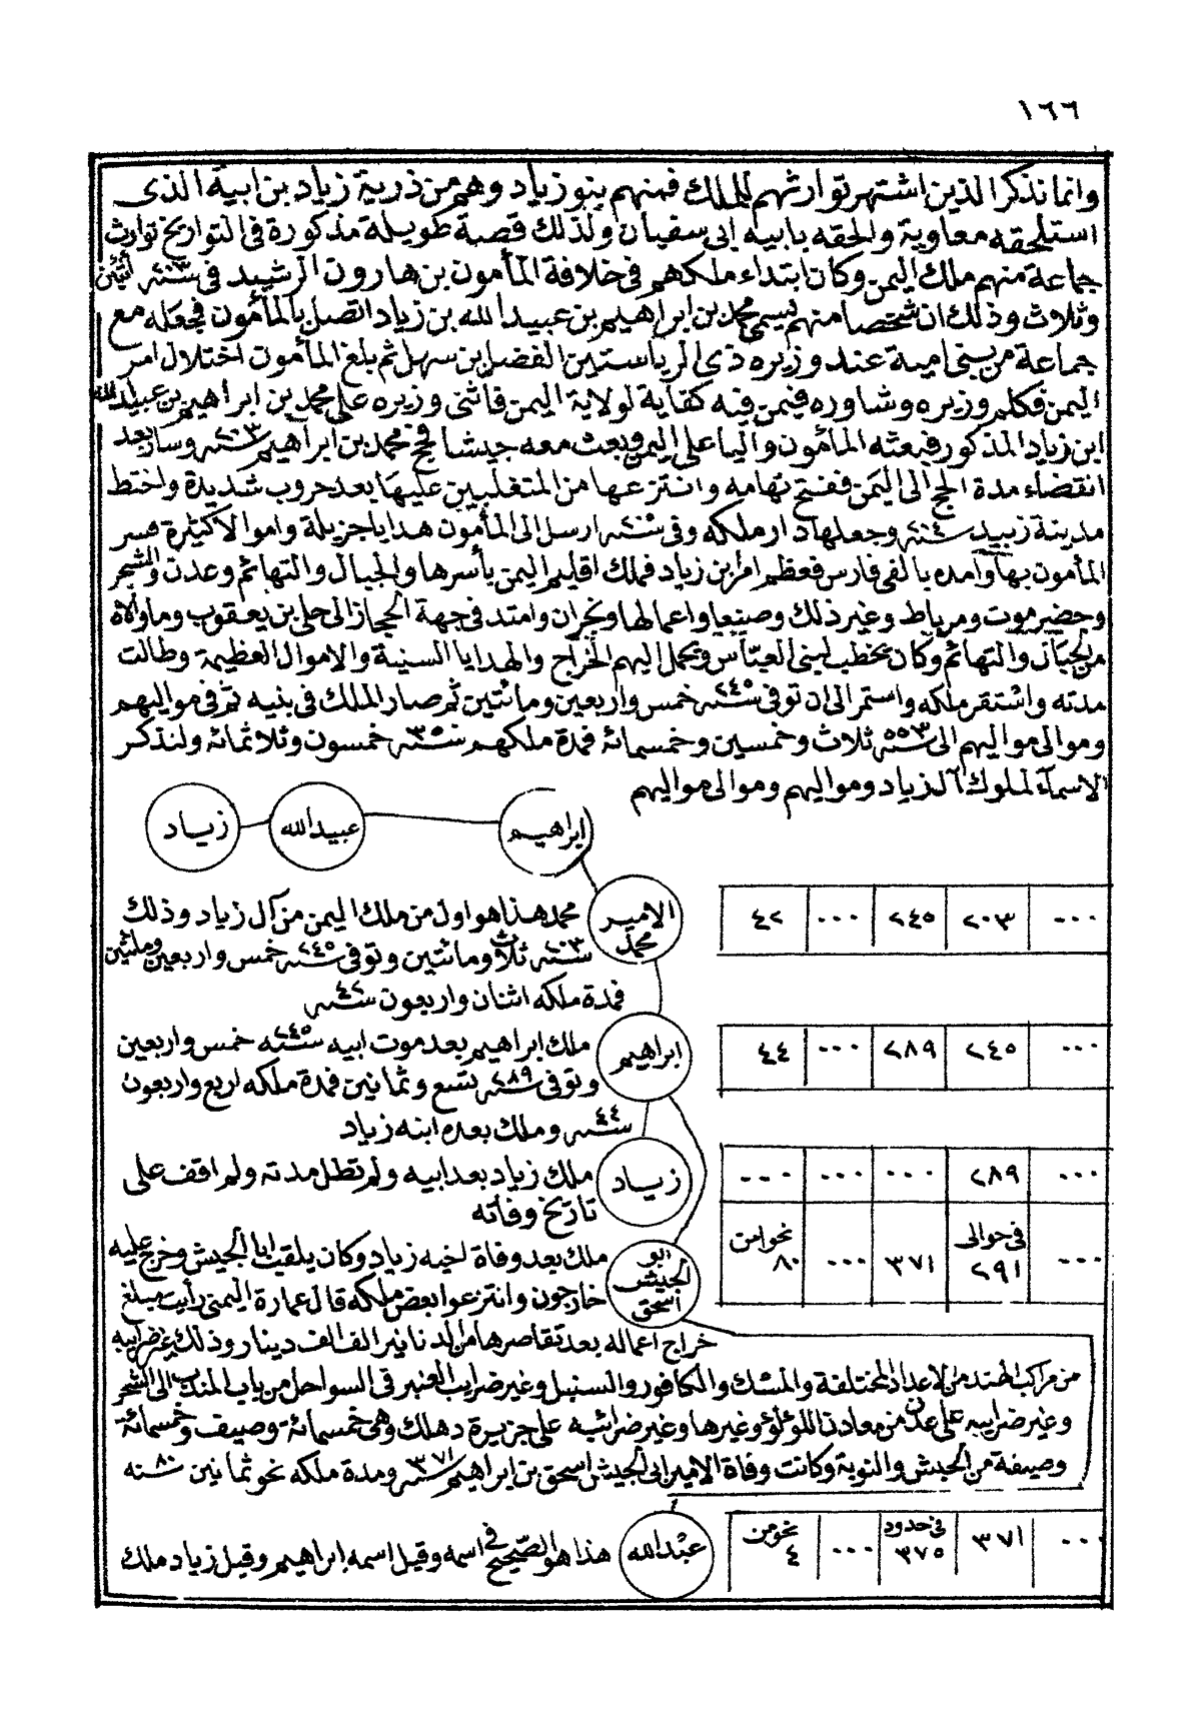 ١٦٦
وانما نذكر الذين اشتهر توارثهم للملك فمنهم بنو زياد وهم من ذرية زياد بن ابيه الذى
استلحقه معاوية والحقه بابيه ابى سفيان ولذلك قصة طويلة مذكورة فى التواريخ توارث
جماعة منهم ملك اليمن وكان ابتداء ملكهم فى خلافة المأمون بن هارون الرشيد فى سنة ٢٠٣ مأتين
وثلاث وذلك ان شخصا منهم يسمى محمد بن ابراهيم بن عبيد الله بن زياد اتصل بالمأمون فجعله مع
جماعة من بنى امية عند وزيره ذى الرياستين الفضل بن سهل ثم بلغ المأمون اختلال امر
اليمن فكلم وزيره وشاوره فيمن فيه كفاية لولاية اليمن فاثنى وزيره على محمد بن ابراهيم بن عبيد الله
ابن زياد المذكور فبعثه المأمون واليا على اليمن وبعث معه جيشا فحج محمد بن ابراهيم سنة ٢٠٣ وسار بعد
انقضاء مدة الحج الى اليمن ففتح تهامه وانتزعها من المتغلبين عليها بعد حروب شديدة واختط
مدينة زبيد سنة ٢٠٤ وجعلها دار ملكه وفى سنة ارسل الى المأمون هدايا جزيلة واموالا كثيرة فسر
المأمون بها وامده بالفى فارس فعظم امر بن زياد فملك اقليم اليمن بأسرها والجبال والتهائم وعدن والشحر
وحضرموت ومرباط وغير ذلك وصنعا واعمالها ونجران وامتد فى جهة الحجاز الى حلى بن يعقوب وما والاه
من الجبال والتهائم وكان يخطب لبنى العباس ويحمل اليهم الخراج والهدايا السنية والاموال العظيمة وطالت
مدته واشتقر ملكه واستمر الى ان توفى سنة ٢٤٥ خمس واربعين ومائتين ثم صار الملك فى بنيه ثم فى مواليهم
وموالى مواليهم الى سنة ٥٥٣ ثلاث وخمسين وخمسمائه فمدة ملكهم سنة ٣٥٠ خمسون وثلاثمائه ولنذكر
الاسمآء لملوك آل زياد ومواليهم وموالى مواليهم
ابراهيم عبيد الله زياد
٠٠٠ ٢٠٣ ٢٤٥ ٠٠٠ ٤٢
الامير محمد
محمد هذا هو اول من ملك اليمن من آل زياد وذلك
سنة ٢٠٣ ثلاث ومائتين وتوفى سنة ٢٤٥ خمس واربعين ومائتين
فمدة ملكه اثنان واربعون سنة ٤٢
٠٠٠ ٢٤٥ ٢٨٩ ٠٠٠ ٤٤
ابراهيم
ملك ابراهيم بعد موت ابيه سنة ٢٤٥ خمس واربعين
وتوفى سنة ٢٨٩ تسع وثمانين فمدة ملكه اربع واربعون
سنة ٤٤ وملك بعده ابنه زياد
٠٠٠ ٢٨٩ ٠٠٠ ٠٠٠ ٠٠٠
زياد
ملك زياد بعد ابيه ولم تطل مدته ولم اقف على
تاريخ وفاته
٠٠٠ فى حوالى ٢٩١ ٣٧١ ٠٠٠ نحو من ٨٠
ابو الجيش اسحق
ملك بعد وفاة اخيه زياد وكان يلقب ابا الجيش وخرج عليه
خارجون وانتزعوا بعض ملكه قال عمارة اليمنى رأيت مبلغ
خراج اعماله بعد تقاصرها من الدنانير الف الف دينار وذلك غير ضرايبه
من مراكب الهند من الاعداد المختلفة والمسك والكافور والسنبل وغير ضرايب العنبر فى السواحل من باب المندب الى الشحر
وغير ضرايبه على عدن من معادن اللؤلؤ وغيرها وغير ضرائبه على جزيرة دهلك وهى خمسمائة وصيف وخمسمائة
وصيفة من الحبش والنوبة وكانت وفاة الامير ابى الجيش اسحق بن ابراهيم سنة ٣٧١ ومدة ملكه نحو ثمانين ٨٠ سنه
٠٠٠ ٣٧١ فى حدود ٣٧٥ ٠٠٠ نحو من ٤
عبد الله
هذا هو الصحيح فى اسمه وقيل اسمه ابراهيم وقيل زياد ملك